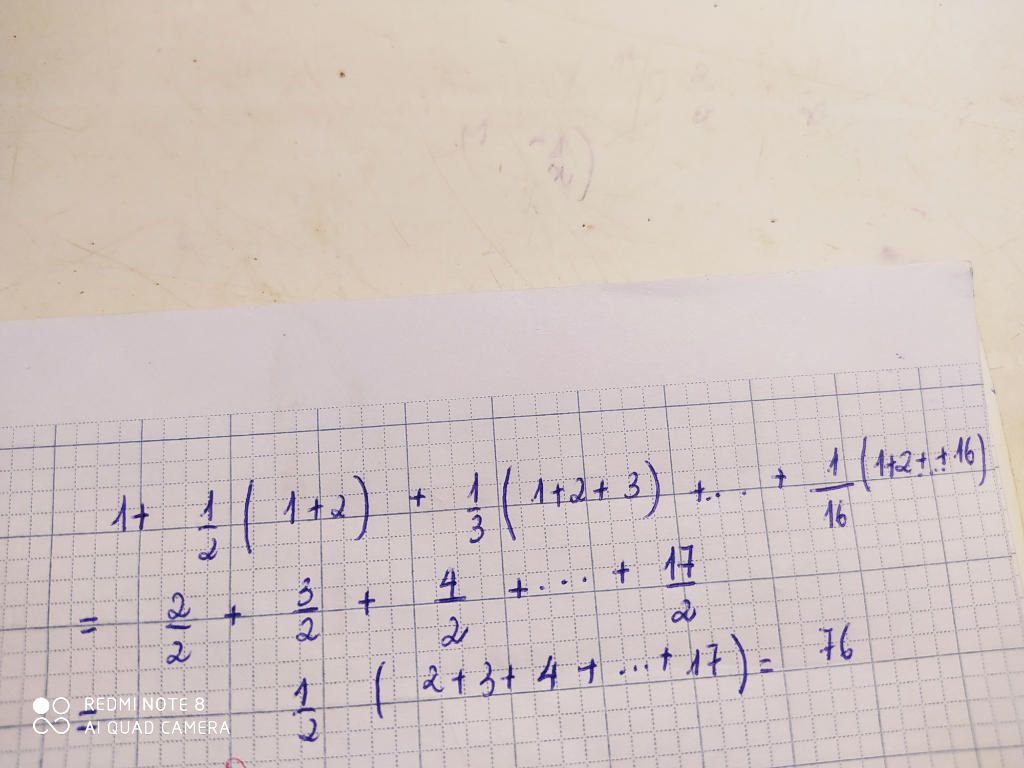 1+ 1/2 ( 1+2 ) + 1/3 ( 1+2+3 ) +... + 1/16 (1+2+..+16)
= 2/2 + 3/2 + 4/2 +... + 17/2
= 1/2 ( 2+3+4+...+17 ) = 76
REDMI NOTE 8
AI QUAD CAMERA